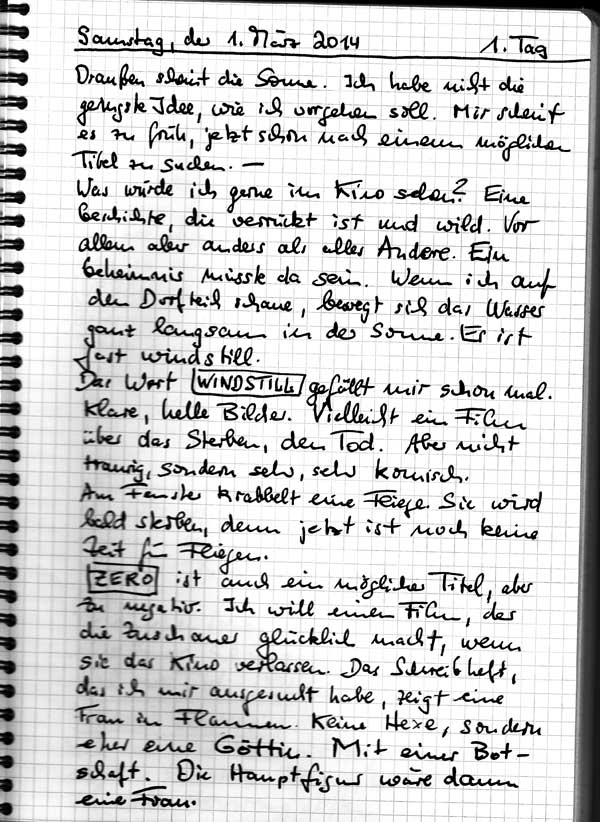 Samstag, der 1. März 2014 1. Tag
Draußen scheint die Sonne. Ich habe nicht die
geringste Idee, wie ich vorgehen soll. Mir scheint
es zu früh, jetzt schon nach einem möglichen
Titel zu suchen. —
Was würde ich gerne im Kino sehen? Eine
Geschichte, die verrückt ist und wild. Vor
allem aber anders als alles Andere. Ein
Geheimnis müsste da sein. Wenn ich auf
den Dorfteich schaue, bewegt sich das Wasser
ganz langsam in der Sonne. Es ist
fast windstill.
Das Wort WINDSTILL gefällt mir schon mal.
Klare, helle Bilder. Vielleicht ein Film
über das Sterben, den Tod. Aber nicht
traurig, sondern sehr, sehr komisch.
Am Fenster krabbelt eine Fliege. Sie wird
bald sterben, denn jetzt ist noch keine
Zeit für Fliegen.
ZERO ist auch ein möglicher Titel, aber
zu negativ. Ich will einen Film, der
die Zuschauer glücklich macht, wenn
sie das Kino verlassen. Das Schreibheft,
das ich mir ausgesucht habe, zeigt eine
Frau in Flammen. Keine Hexe, sondern
eher eine Göttin. Mit einer Bot-
schaft. Die Hauptfigur wäre dann
eine Frau.